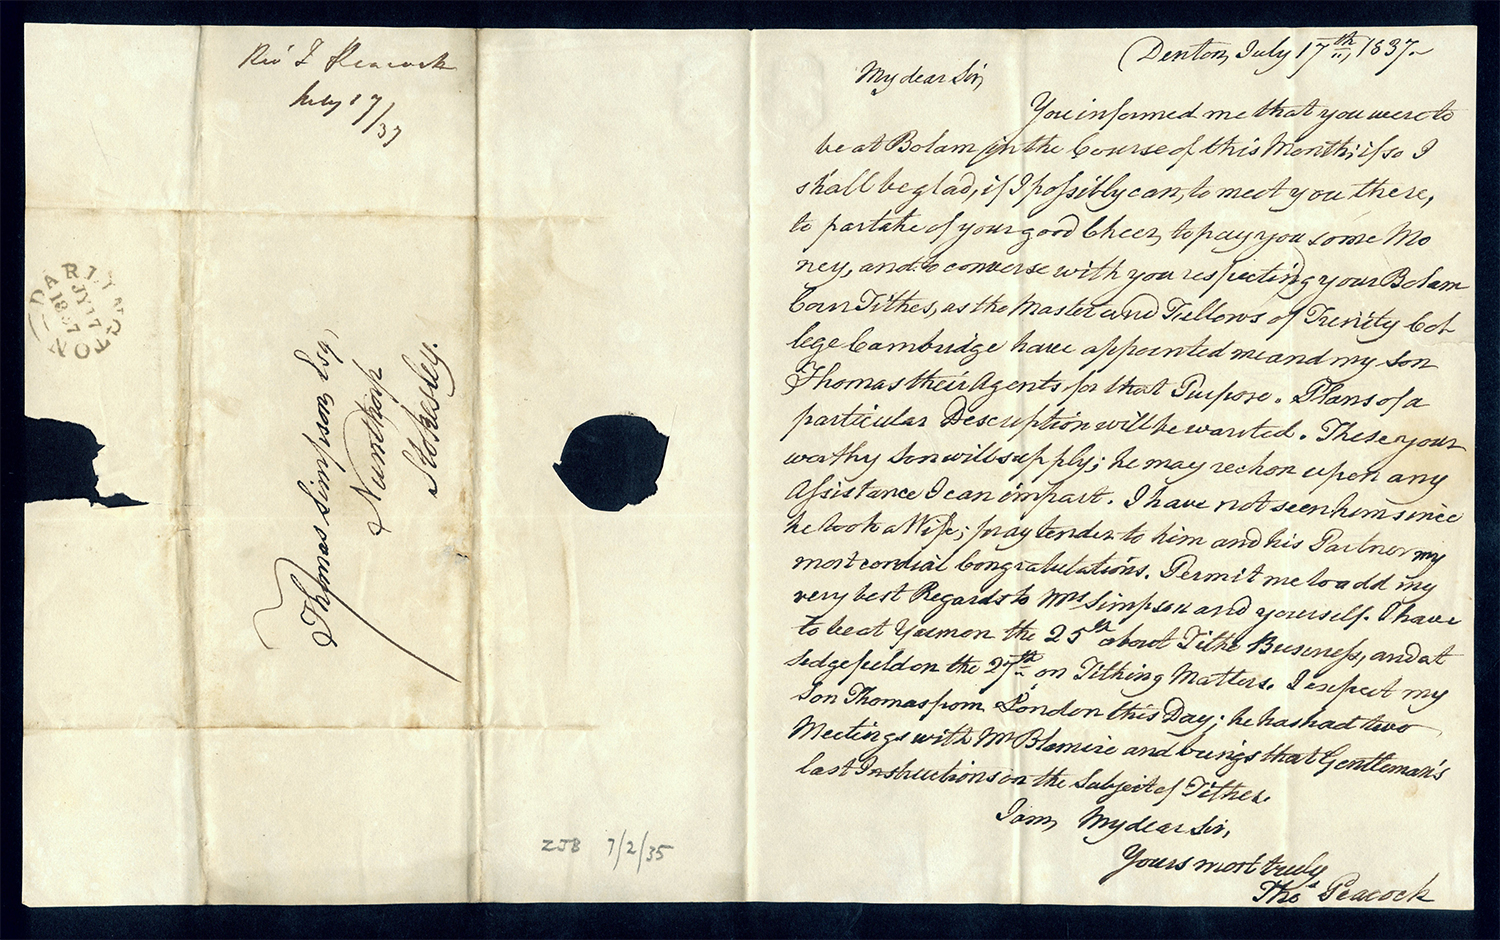 Rev T Peacock
July 17/37
DARLINGTON
JY 17
1837
Thomas Simpson, Esq,
Nunthorp
Stokesley.
ZJB 7/2/35
Denton, July 17th, 1837.
My dear Sir,
You informed me that you were to
be at Bolam in the Course of this Month; if so I
shall be glad, if I possibly can, to meet you there,
to partake of your good Cheer, to pay you some Mo
ney, and to converse with you respecting your Bolam
Corn Tithes, as the Master and Fellows of Trinity Col
lege Cambridge have appointed me and my son
Thomas their Agents for that Purpose. Plans of a
particular Description will be wanted. These your
worthy Son will supply; he may reckon upon any
Assistance I can impart. I have not seen him since
he took a Wife; pray tender to him and his Partner my
most cordial Congratulations. Permit me to add my
very best Regards to Mrs Simpson and yourself. I have
to be at Yarm on the 25th about Tithe Business, and at
Sedgefield on the 27th on Tithing Matters. I expect my
Son Thomas from London this Day; he has had two
Meetings with Mr Blamire and brings that Gentleman's
last Instructions on the Subject of Tithes.
I am, My dear Sir,
Yours most truly
Thos Peacock